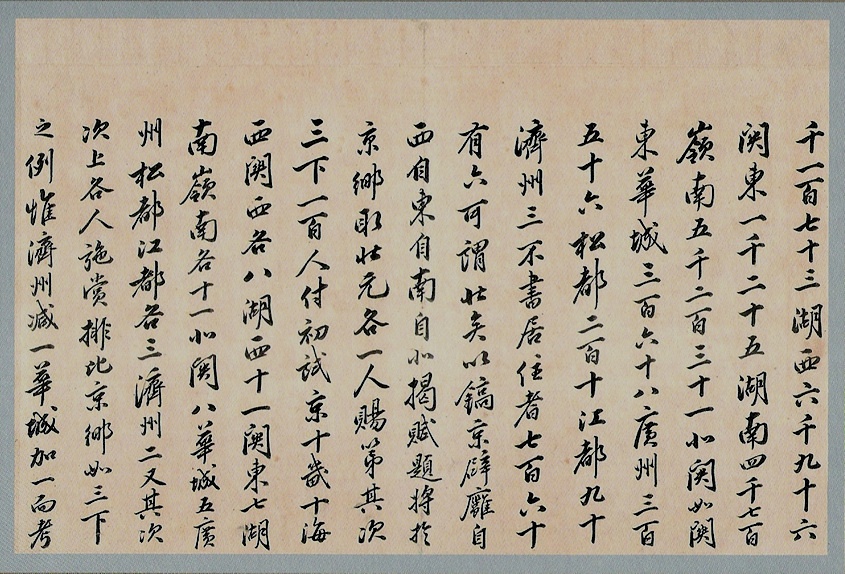 千一百七十三湖西六千九十六
関東一千二十五湖南四千七百
嶺南五千二百三十一北関如関
東華城三百六十八廣州三百
五十六松都二百十江都九十
濟州三不書居住者七百六十
有六可謂壯矣以鎬京辟廱自
西自東自南自北揭賦題將於
京鄉取壯元各一人賜第其次
三下一百人付初試京十畿十海
西関西各八湖西十一関東七湖
南嶺南各十一北関八華城五廣
州松都江都各三濟州二又其次
次上各人施賞排比京鄉如三下
之例惟濟州減一華城加一而考